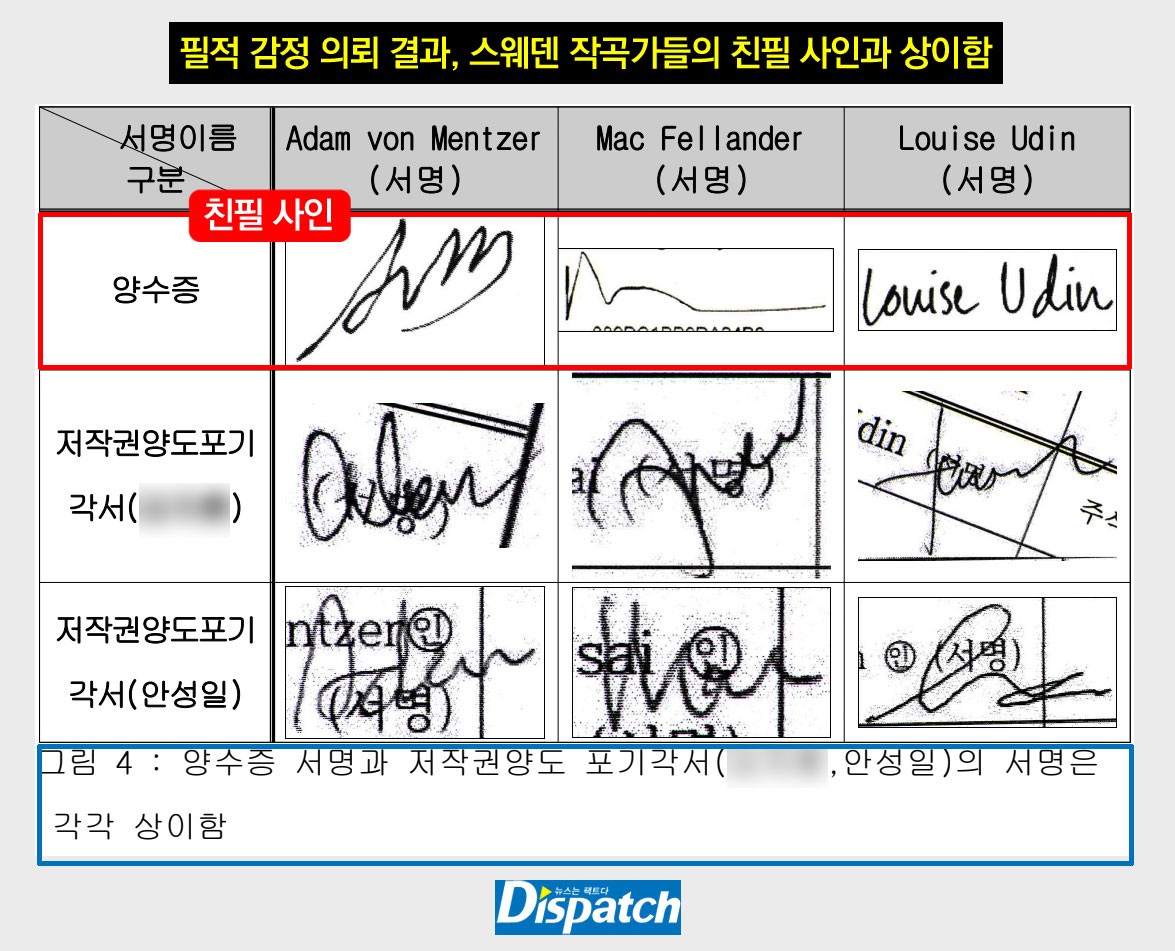 필적 감정 의뢰 결과, 스웨덴 작곡가들의 친필 사인과 상이함
서명이름
구분
Adam von Mentzer
(서명)
Mac Fellander
(서명)
Louise Udin
(서명)
친필 사인
양수증
Louise Udin
저작권양도포기
각서( )
(서명)
sai (서명)
din
(서명)
주소
저작권양도포기
각서(안성일)
ntzer 인
(서명)
sai 인
(서명)
n 인 (서명)
그림 4 : 양수증 서명과 저작권양도 포기각서( ,안성일)의 서명은
각각 상이함
뉴스는 팩트다
Dispatch